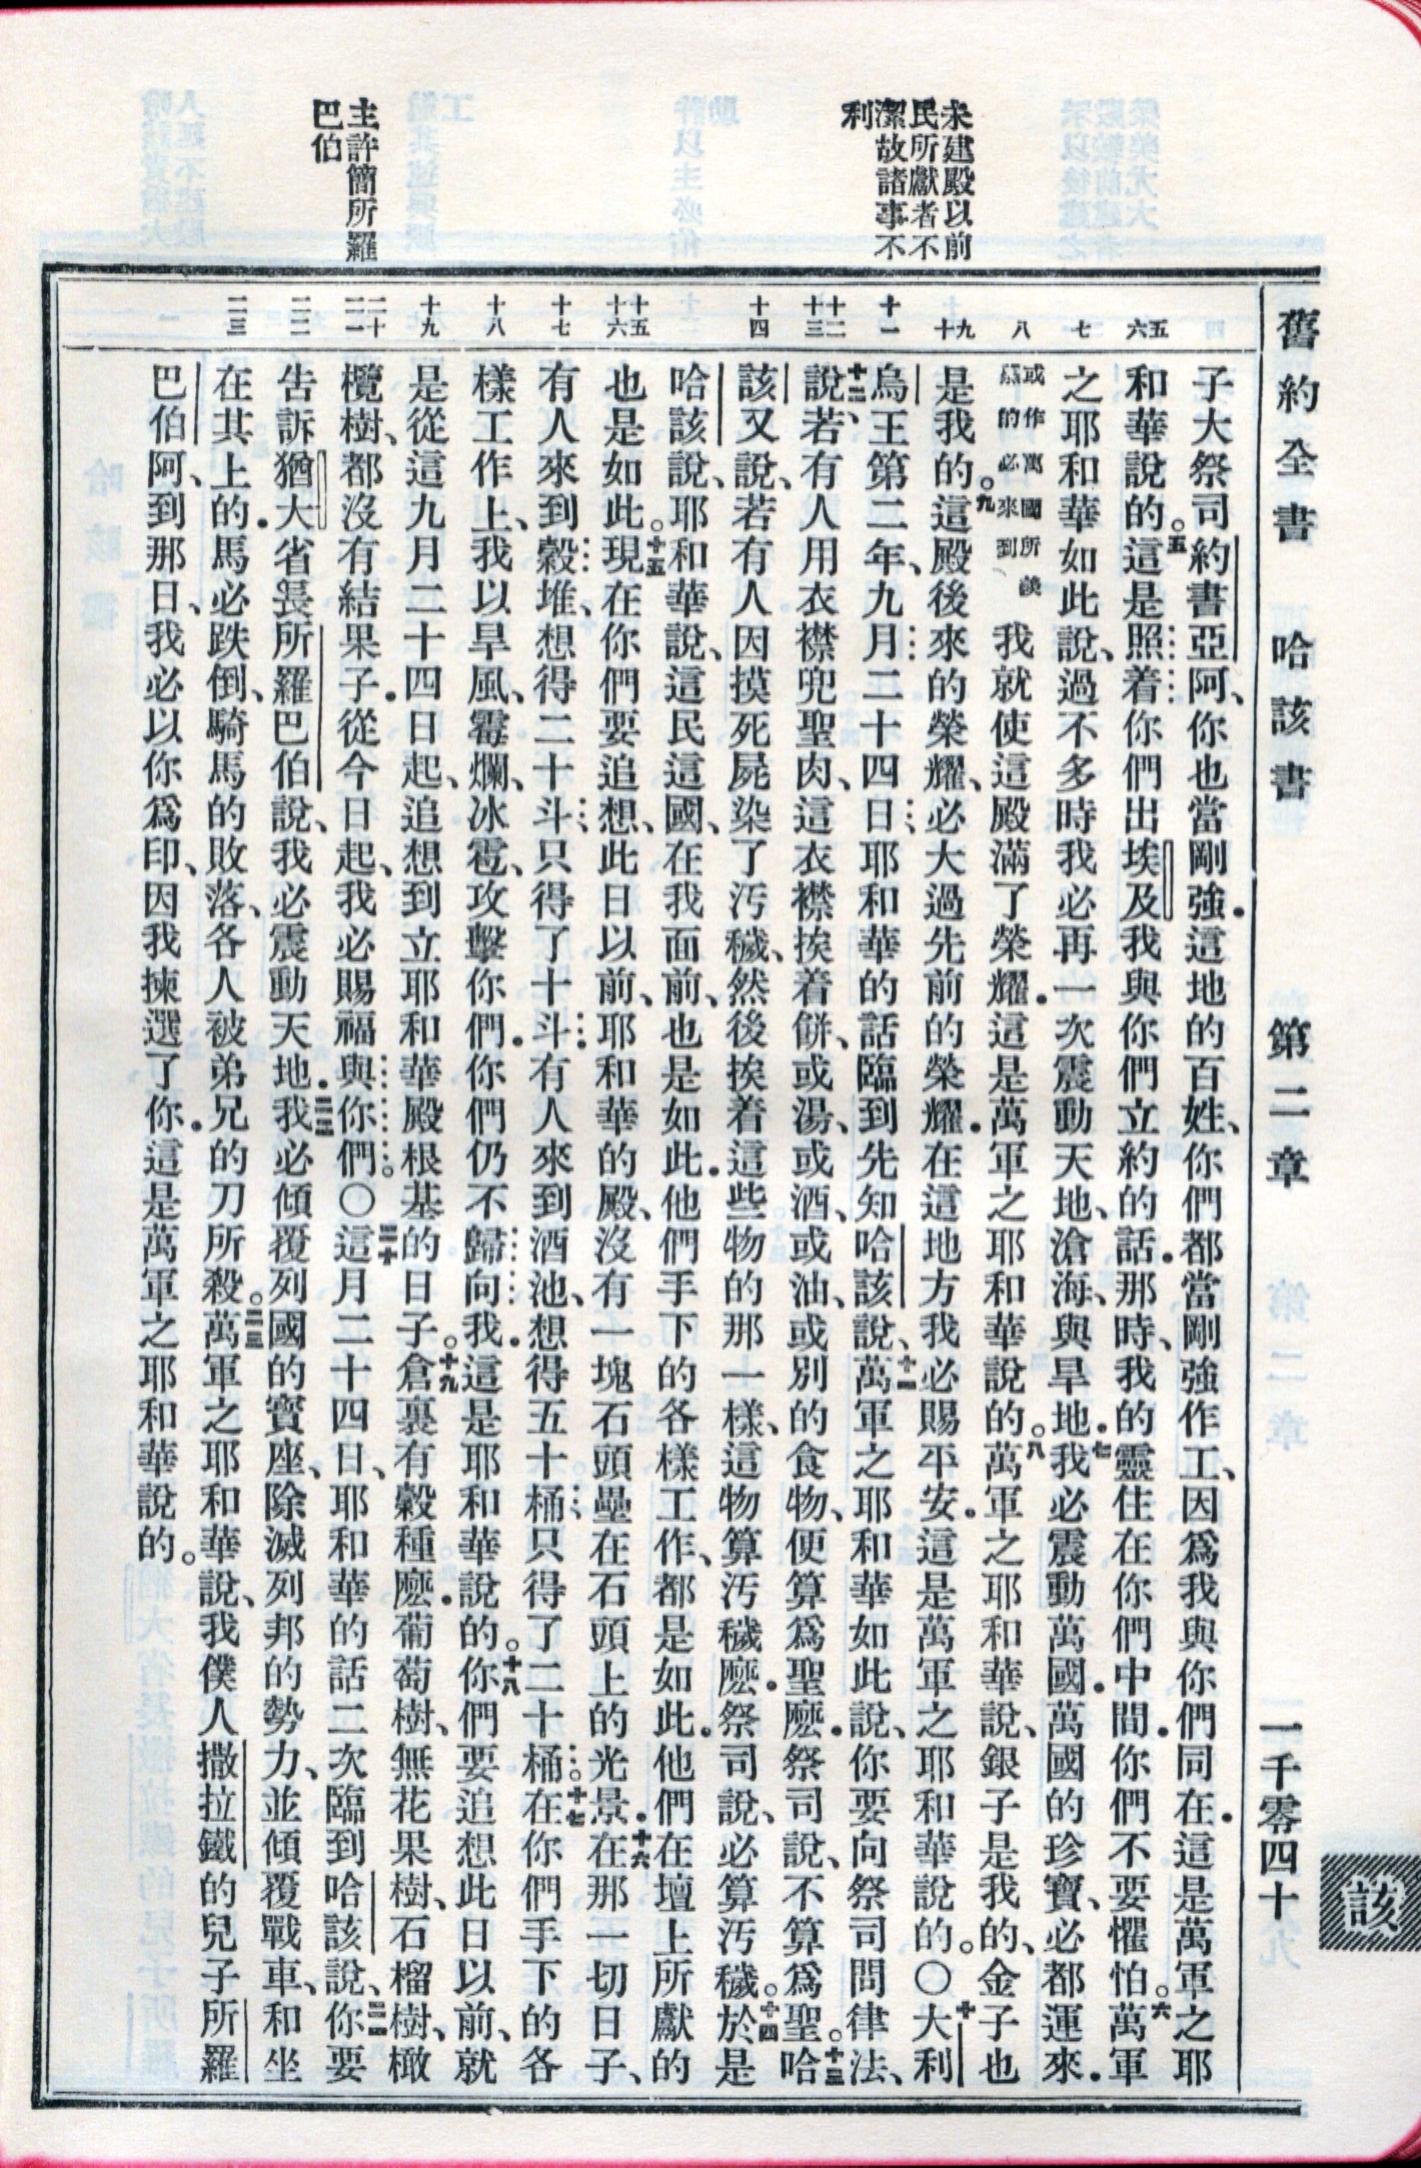 舊約全書 哈該書 第二章 一千零四十
該
未建殿以前
民所獻者不
潔故諸事不
利
主許簡所羅
巴伯
五
六
七
八
九
十
十一
十二
十三
十四
十五
十六
十七
十八
十九
二十
二一
二二
二三
子大祭司約書亞阿、你也當剛強．這地的百姓、你們都當剛強作工、因爲我與你們同在．這是萬軍之耶
和華說的。五這是照着你們出埃及我與你們立約的話．那時、我的靈住在你們中間．你們不要懼怕。六萬軍
之耶和華如此說、過不多時我必再一次震動天地、滄海、與旱地．七我必震動萬國．萬國的珍寶、必都運來．
或作萬國所羨慕的必來到 我就使這殿滿了榮耀．這是萬軍之耶和華說的。八萬軍之耶和華說、銀子是我的、金子也
是我的。九這殿後來的榮耀、必大過先前的榮耀．在這地方我必賜平安．這是萬軍之耶和華說的。〇十大利
烏王第二年、九月二十四日、耶和華的話臨到先知哈該說、十一萬軍之耶和華如此說、你要向祭司問律法、
十二說、若有人用衣襟兜聖肉、這衣襟挨着餅、或湯、或酒、或油、或別的食物、便算爲聖麽．祭司說、不算爲聖。十三哈
該又說、若有人因摸死屍染了汚穢、然後挨着這些物的那一樣、這物算汚穢麽．祭司說、必算汚穢。十四於是
哈該說、耶和華說、這民這國、在我面前、也是如此．他們手下的各樣工作、都是如此．他們在壇上所獻的
也是如此。十五現在你們要追想、此日以前、耶和華的殿、沒有一塊石頭壘在石頭上的光景．十六在那一切日子、
有人來到穀堆、想得二十斗、只得了十斗．有人來到酒池、想得五十桶、只得了二十桶。十七在你們手下的各
樣工作上、我以旱風、霉爛、冰雹、攻擊你們．你們仍不歸向我．這是耶和華說的。十八你們要追想此日以前、就
是從這九月二十四日起、追想到立耶和華殿根基的日子。十九倉裏有穀種麽．葡萄樹、無花果樹、石榴樹、橄
欖樹、都沒有結果子．從今日起、我必賜福與你們。〇二十這月二十四日、耶和華的話二次臨到哈該說、二一你要
告訴猶大省長所羅巴伯說、我必震動天地．二二我必傾覆列國的寶座、除滅列邦的勢力、並傾覆戰車、和坐
在其上的．馬必跌倒、騎馬的敗落、各人被弟兄的刀所殺。二三萬軍之耶和華說、我僕人撒拉鐵的兒子所羅
巴伯阿、到那日、我必以你爲印、因我揀選了你．這是萬軍之耶和華說的。